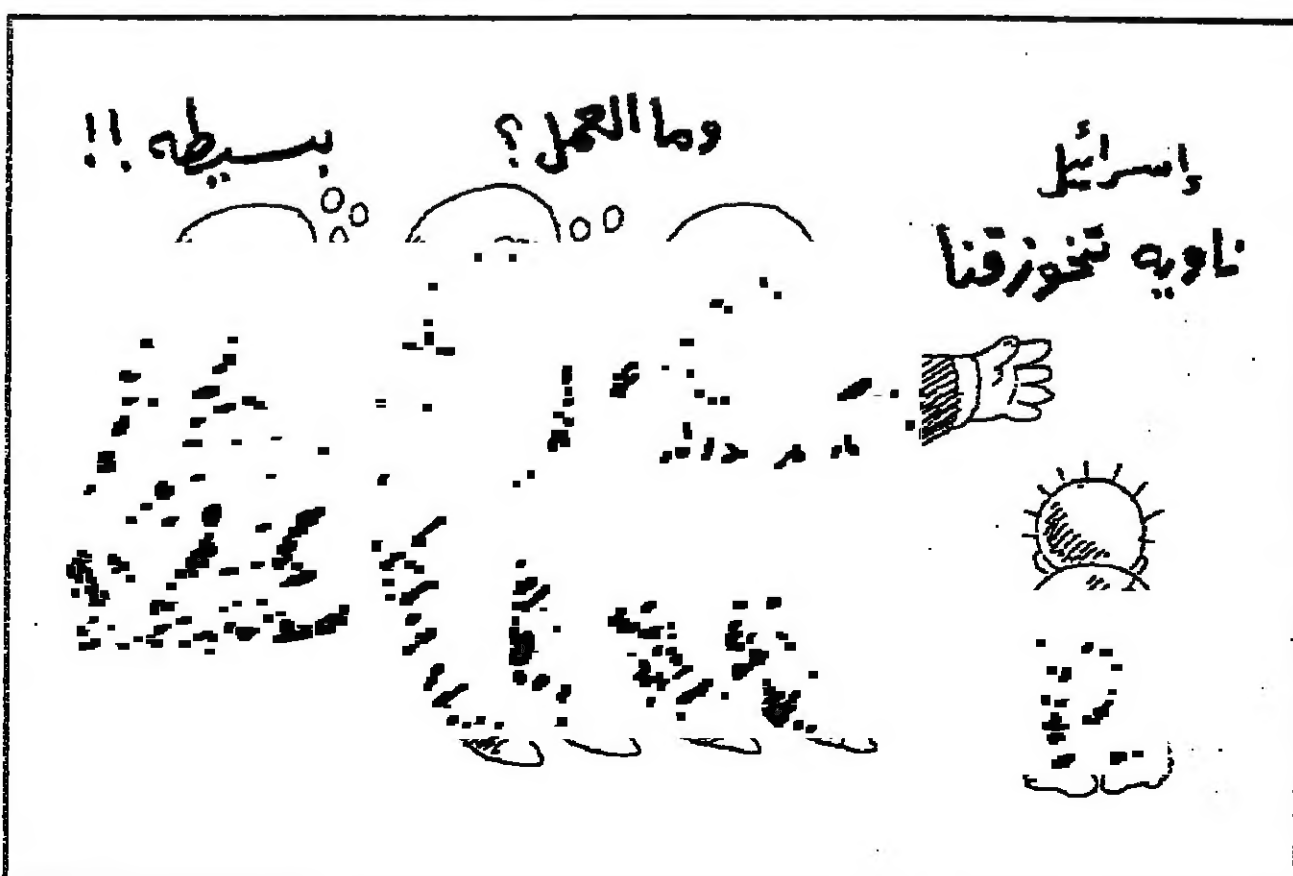 إسرائيل
ناويه تخوزقنا
وما العمل؟
بسيطه!!